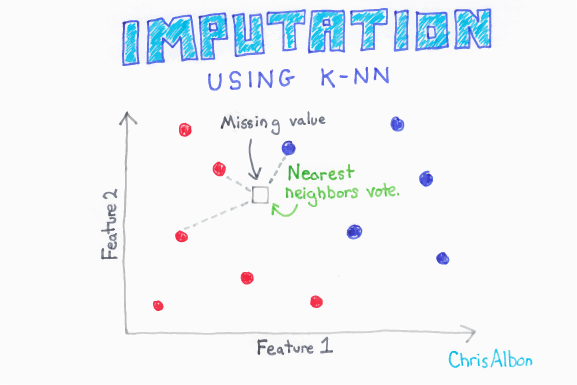 IMPUTATION
USING K-NN
Missing value
Nearest
neighbors vote.
Feature 2
Feature 1
ChrisAlbon